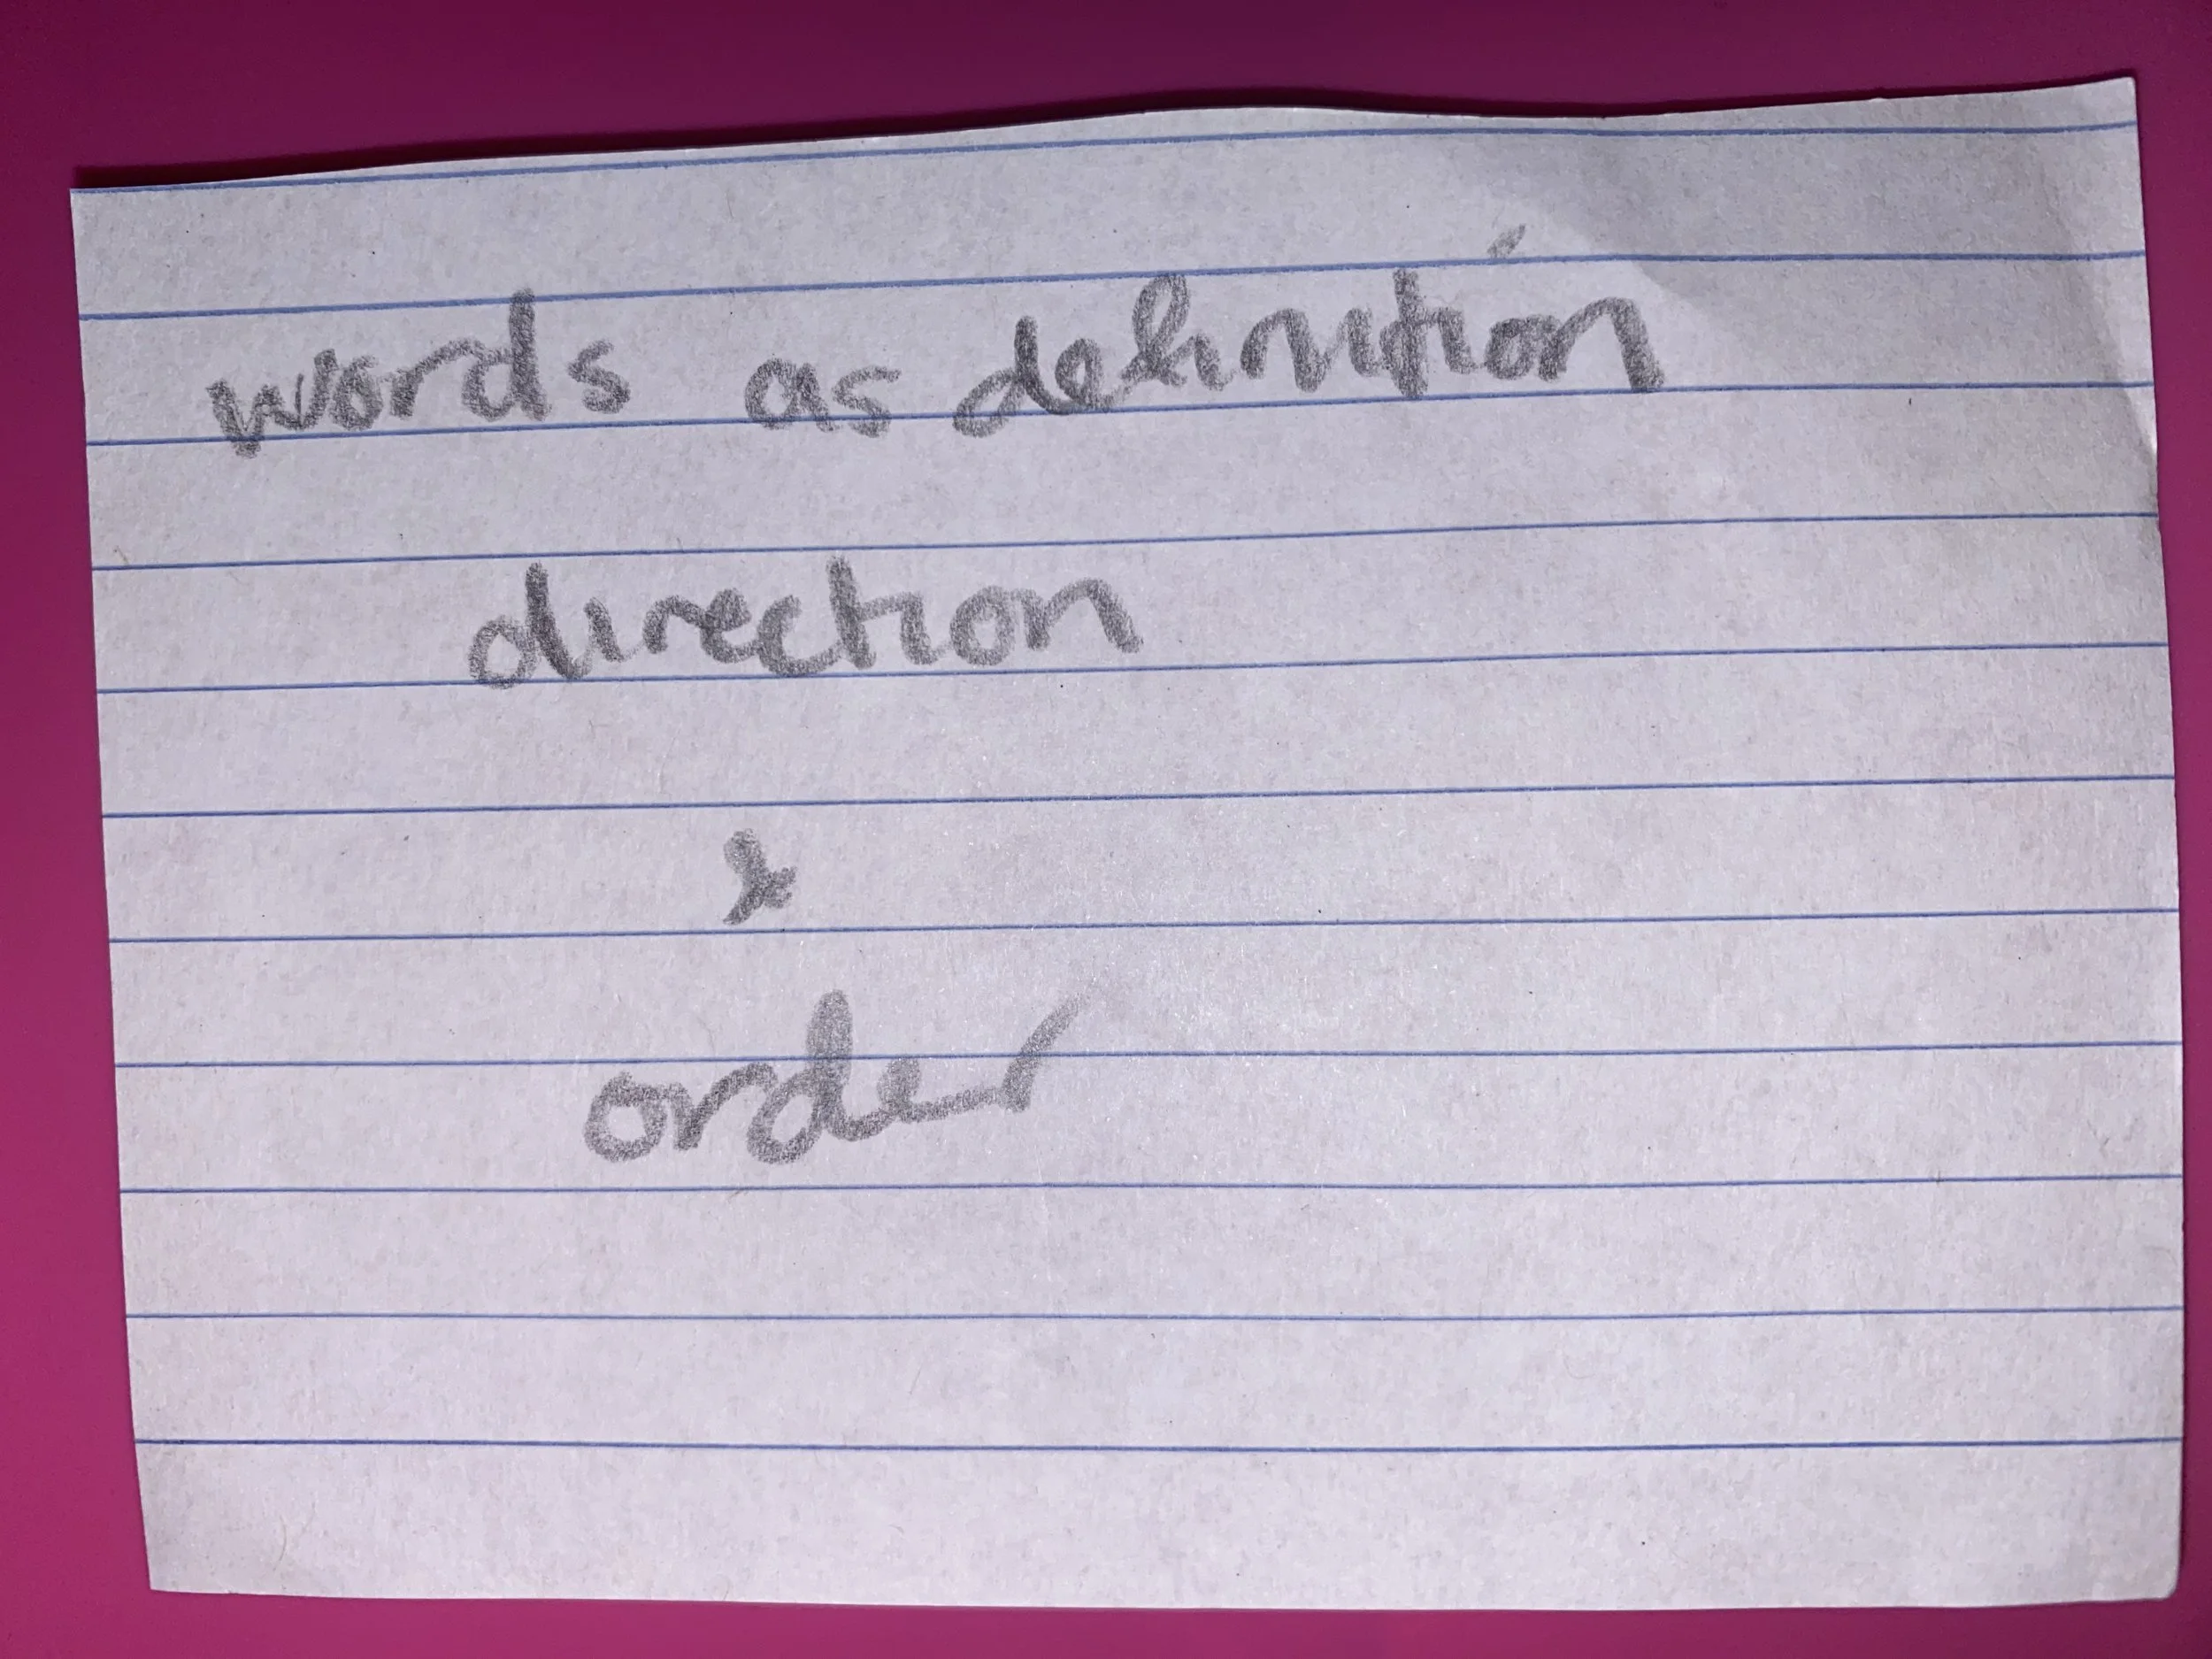 words as definition
direction
&
order